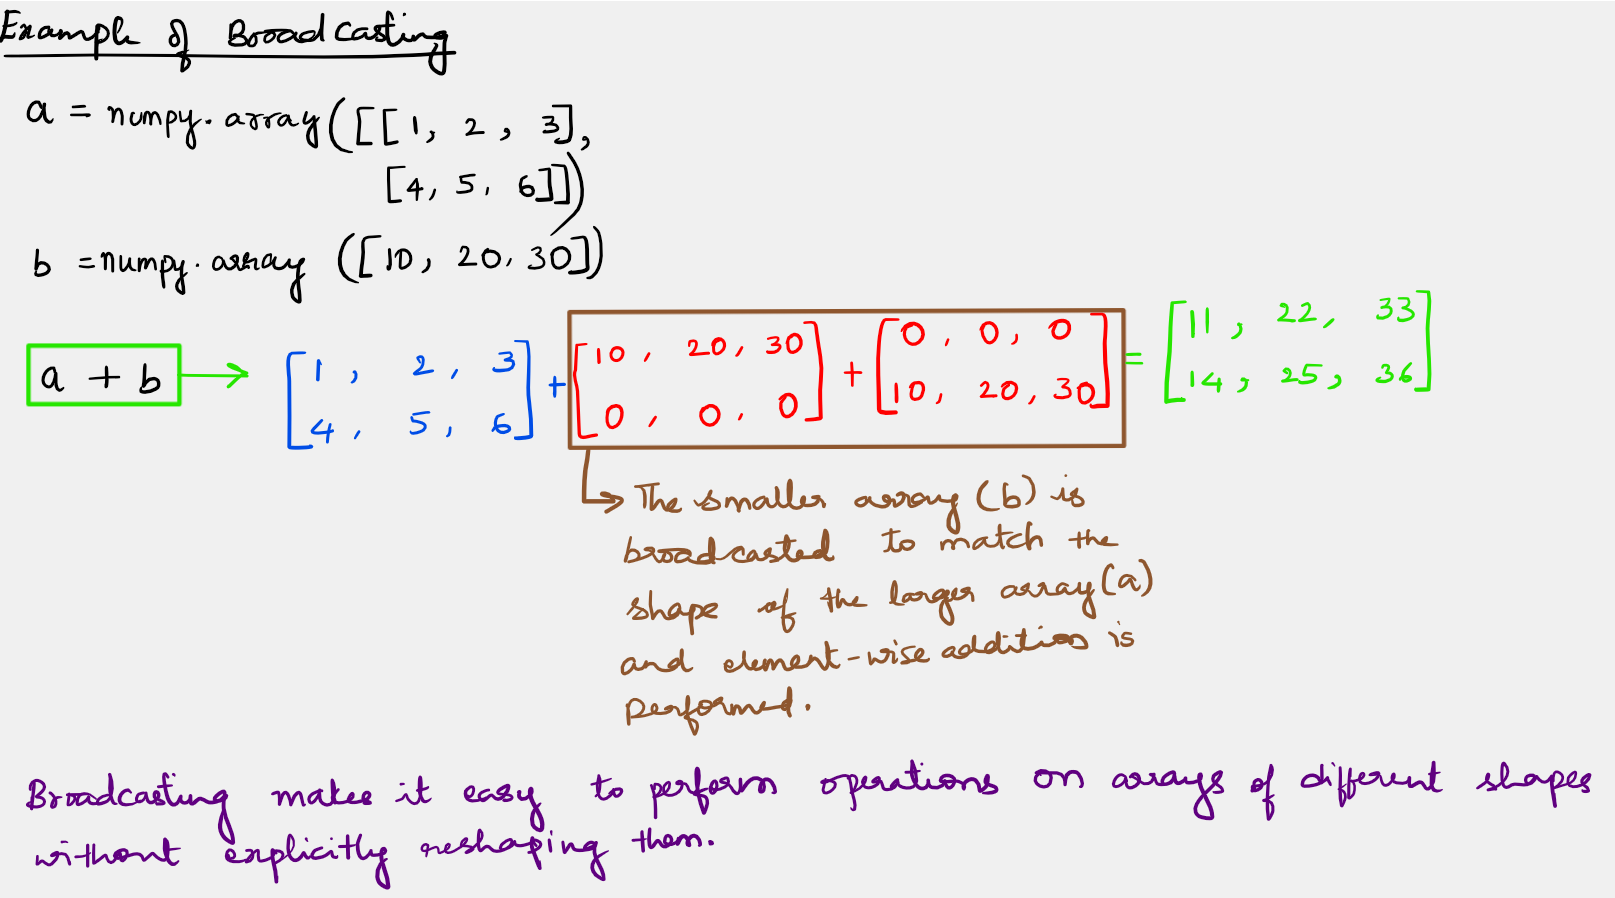 Example of Broadcasting
a = numpy.array([[1, 2, 3],
[4, 5, 6]])
b = numpy.array ([10, 20, 30])
a + b → [1, 2, 3 + [10, 20, 30 + [0, 0, 0 = [11, 22, 33
4, 5, 6] 0, 0, 0] 10, 20, 30] 14, 25, 36]
The smaller array (b) is
broadcasted to match the
shape of the larger array (a)
and element-wise addition is
performed.
Broadcasting makes it easy to perform operations on arrays of different shapes
without explicitly reshaping them.